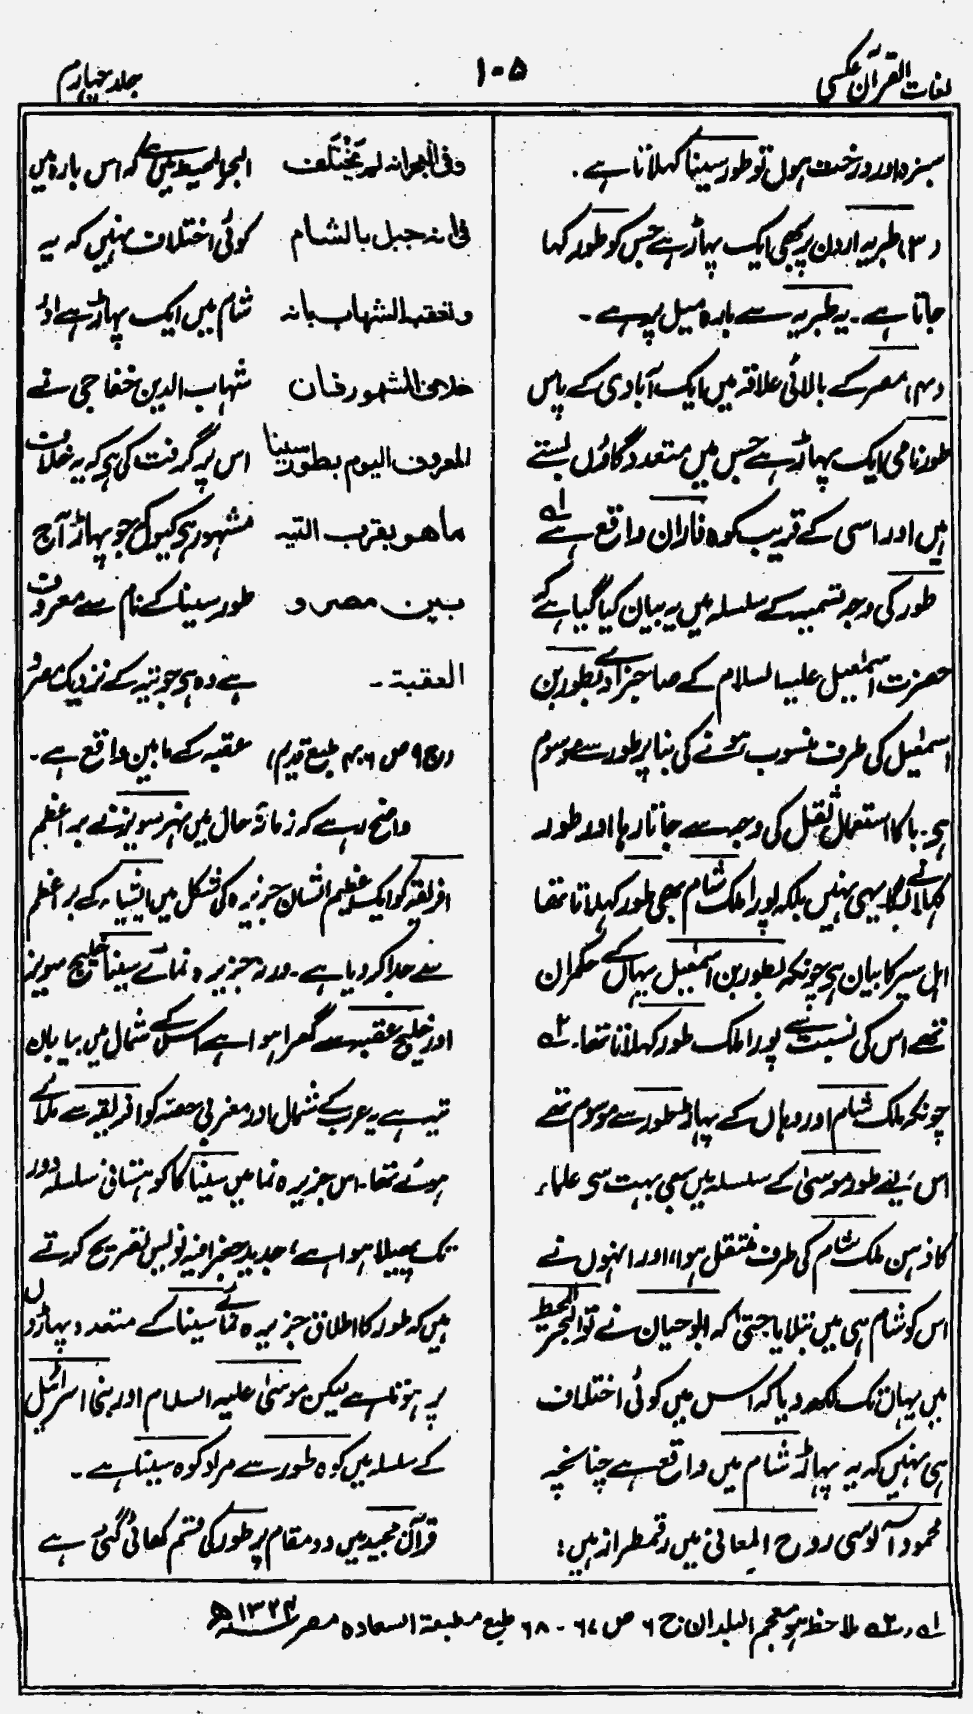 لغات القرآن عکسی
۱۰۵
جلد چہارم
سبزہ اور درخت ہوں تو طور سینا کہلاتا ہے۔
(۳) طبریہ اردن پر بھی ایک پہاڑ ہے جس کو طور کہا
جاتا ہے۔ یہ طبریہ سے بارہ میل پر ہے۔
(۴) مصر کے بالائی علاقہ میں ایک آبادی کے پاس
طور نامی ایک پہاڑ ہے جس میں متعدد گاؤں بستے
ہیں اور اسی کے قریب کوہ فاران واقع ہے ۱؎
طور کی وجہ تسمیہ کے سلسلہ میں یہ بیان کیا گیا ہے کہ
حضرت اسمٰعیل علیہ السلام کے صاحبزادے بطور بن
اسمٰعیل کی طرف منسوب ہونے کی بنا پر طور سے موسوم
ہے۔ با کا استعمال ثقل کی وجہ سے جاتا رہا اور طور
کہلانے لگا یہی نہیں بلکہ پورا ملک شام بھی طور کہلاتا تھا
اہل سیر کا بیان ہے چونکہ بطور بن اسمٰعیل یہاں کے حکمران
تھے اس کی نسبت سے پورا ملک طور کہلاتا تھا۔ ۲؎
چونکہ ملک شام اور وہاں کے پہاڑ طور سے موسوم تھے
اس لیے طور موسیٰ کے سلسلہ میں بھی بہت سی علماء
کا ذہن ملک شام کی طرف منتقل ہوا، اور انہوں نے
اس کو شام ہی میں بتلایا حتیٰ کہ ابو حیان نے تو البحر المحیط
میں یہاں تک لکھ دیا کہ اس میں کوئی اختلاف
ہی نہیں کہ یہ پہاڑ شام میں واقع ہے چنانچہ
محمود آلوسی روح المعانی میں رقمطراز ہیں:
وفی البحر انہ لم یختلف البحر المحیط میں ہے کہ اس بارہ میں
فی انہ جبل بالشام کوئی اختلاف نہیں کہ یہ
وتعقبہ الشہاب بانہ شام میں ایک پہاڑ ہے اور
خلاف المشہور فان شہاب الدین خفاجی نے
المعروف الیوم بطور سینا اس پر گرفت کی ہے کہ یہ خلاف
ما ھو بقرب التیہ مشہور ہے کیوں کہ جو پہاڑ آج
بین مصر و طور سینا کے نام سے معروف
العقبۃ۔ ہے وہ ہے جو تیہ کے نزدیک مصر و
(ج ۹ ص ۴۰۶ طبع قدیم) عقبہ کے مابین واقع ہے۔
واضح رہے کہ زمانۂ حال میں نہر سویز نے براعظم
افریقہ کو ایک عظیم الشان جزیرہ کی شکل میں ایشیاء کے براعظم
سے جدا کر دیا ہے۔ ورنہ جزیرہ نمائے سینا خلیج سویز
اور خلیج عقبہ سے گھرا ہوا ہے اس کے شمال میں بیابان
تیہ ہے یہ عرب کے شمال اور مغربی حصہ کو افریقہ سے ملائے
ہوئے تھا۔ اس جزیرہ نما میں سینا کا کوہستانی سلسلہ دور
تک پھیلا ہوا ہے، جدید جغرافیہ نویس تصریح کرتے
ہیں کہ طور کا اطلاق جزیرہ نمائے سینا کے متعدد پہاڑوں
پر ہوتا ہے لیکن موسیٰ علیہ السلام اور بنی اسرائیل
کے سلسلہ میں کوہ طور سے مراد کوہ سینا ہے۔
قرآن مجید میں دو مقام پر طور کی قسم کھائی گئی ہے
۱؎ و ۲؎ ملاحظہ ہو معجم البلدان ج ۶ ص ۶۷ - ۶۸ طبع مطبعۃ السعادہ مصر ۱۳۲۴ھ